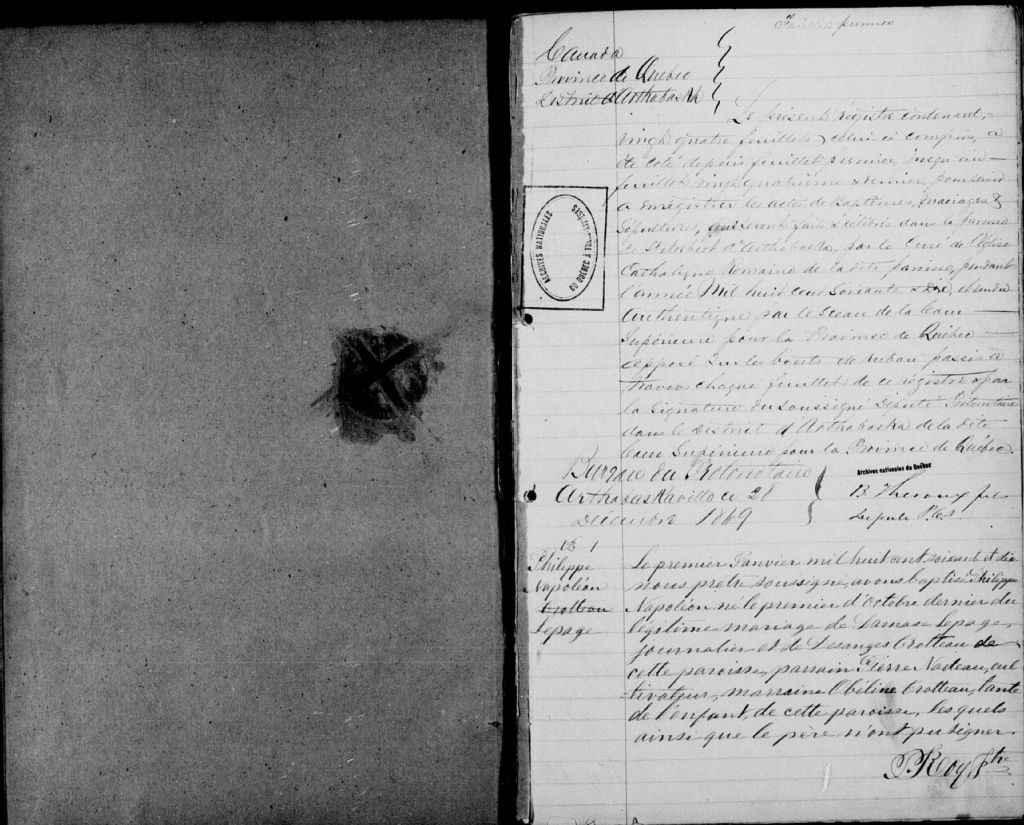 Feuillet premier
Canada
Province de Québec
District d'Arthabaska
Le présent régistre contenant,
vingt quatre feuillets, celui-ci compris, a
été coté depuis feuillet premier, jusqu'au
feuillet vingt quatrième & dernier, pour servir
a enrégistrer les actes de Baptêmes, Mariages &
Sépultures, qui seront faits & célébrés dans la paroisse
de St. Norbert d'Arthabaska, par le Curé de l'Eglise
Catholique Romaine de la dite paroisse, pendant
l'année Mil huit cent Soixante & dix, et rendu
Authentique par le Sceau de la Cour
Supérieure pour la Province de Québec
apposé sur les bouts de ruban passés à
travers chaque feuillet de ce régistre & par
la signature du Soussigné Député Protonotaire
dans le District d'Arthabaska de la dite
Cour Supérieure pour la Province de Québec.
ARCHIVES NATIONALES
DU QUÉBEC À TROIS-RIVIÈRES
Archives nationales du Québec
Bureau du Protonotaire
Arthabaskaville ce 28
Décembre 1869
B. Theroux fils
Député P.C.S.
B 1
Philippe
Napoléon
Trotteau
Lepage
Le premier Janvier mil huit cent soixant et dix
nous prêtre soussigné, avons baptisé Philippe
Napoléon né le premier d'Octobre dernier du
légitime mariage de Damase Lepage,
journalier et de Desanges Trotteau de
cette paroisse, parrain Pierre Nadeau, cul
tivateur, marraine Obéline Trotteau, tante
de l'enfant, de cette paroisse, lesquels
ainsi que le père n'ont pu signer.
P. Roy Ptre